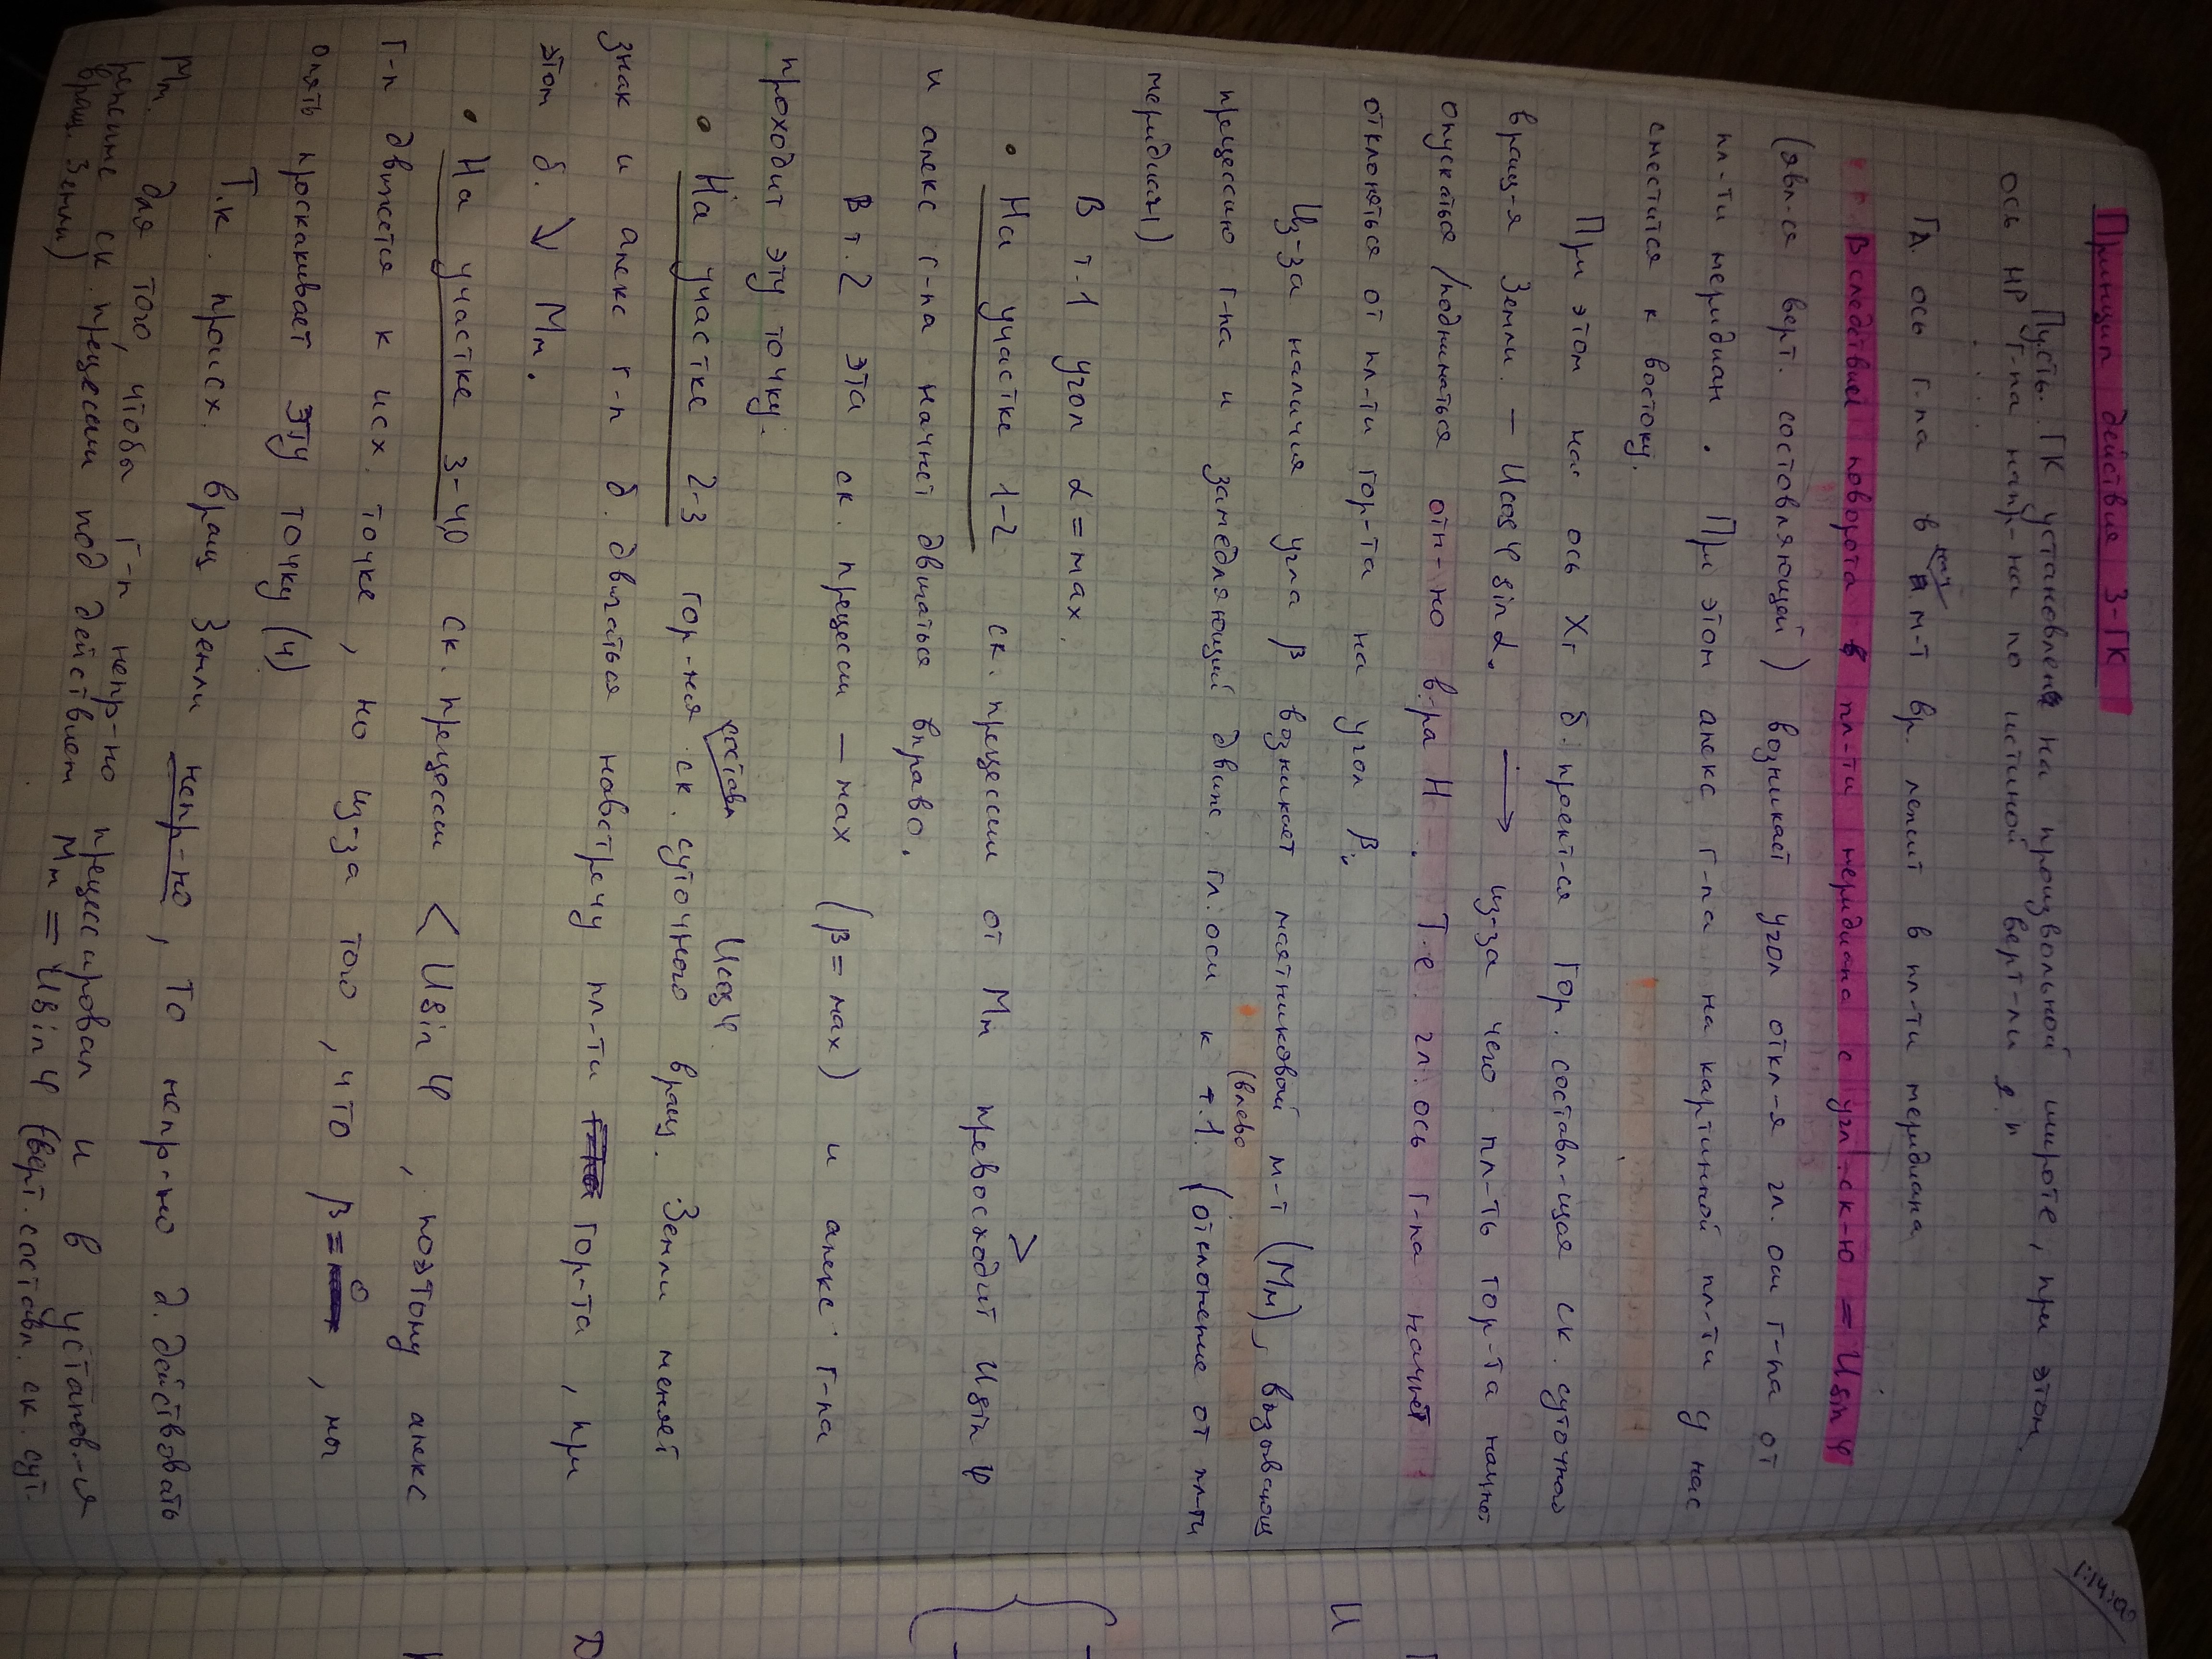 Принцип действия 3-ГК
Пусть ГК установлен на произвольной широте, при этом
ось НР г-па напр-на по истиной верт-ли
ГЛ. ось г-па в нач м-т вр. лежит в пл-ти меридиана
Вследствие поворота пл-ти меридиана с угл. ск-ю = Usin φ
(явл-ся верт. состовляющей) возникает угол откл-я гл. оси г-па от
пл-ти меридиан. При этом апекс г-па на картинной пл-ти у нас
сместится к востоку.
При этом на ось Xг б. проект-ся Гор. составл-щая ск. суточного
вращ-я Земли – Ucosφ sin α. → из-за чего пл-ть гор-та начнет
опускаться/подниматься отн-но в-ра H. Т.е. гл. ось г-па начнет
отклоняться от пл-ти гор-та на угол β.
Из-за наличия угла β возникает маятниковый м-т (Мм), вызывающ
(влево
прецессию г-па и замедляющий движ. гл. оси к т.1 (отклонение от пл-ти
меридиан)
В т.1 угол α = max.
• На участке 1-2 ск. прецессии от Мм превосходит > Usin φ
и апекс г-па начнет двигаться вправо.
В т.2 эта ск. прецессии – max (β = max) и апекс г-па
проходит эту точку.
Ucosφ
• На участке 2-3 гор-ная составл ск. суточного вращ. Земли меняет
знак и апекс г-п б. двигаться навстречу пл-ти гор-та, при
этом б. ↘ Мм.
• На участке 3-4,0 ск. прецессии < Usin φ, поэтому апекс
г-п движется к исх. точке, но из-за того, что β = 0, мы
опять проскакивает эту точку (4)
Т.к. происх. вращ Земли непр-но, то непр-но д. действовать
Мм. для того, чтобы г-п непр-но прецессировал и в установ-ся
режиме ск. прецессии под действием Мм = Usin φ (верт. составл. ск. сут.
вращ. Земли)
1:14:00
И